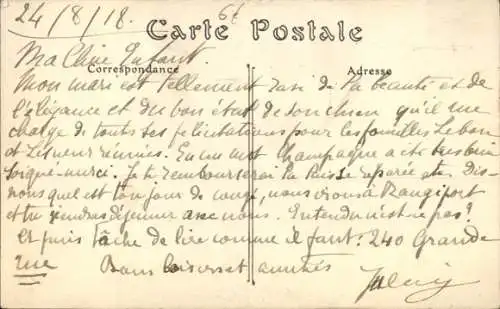 24/8/18. 
Carte Postale
Ma Chère Enfant.
Correspondance
Adresse
Mon mari est tellement ravi de la beauté et de
l'élégance et du bon état de son chien qu'il me
charge de toutes ses félicitations pour les familles Lebon
et réunies. En un mot Champagne a été très bien
soigné-merci. Je te rembourserai la Puis
nous quel est ton jour de congé, nous irons à Rangiport
et tu viendras déjeuner avec nous. Entendu n'est-ce pas?
Et puis tâche de lire comme il faut: 240 Grande
rue Bons baisers et amitiés